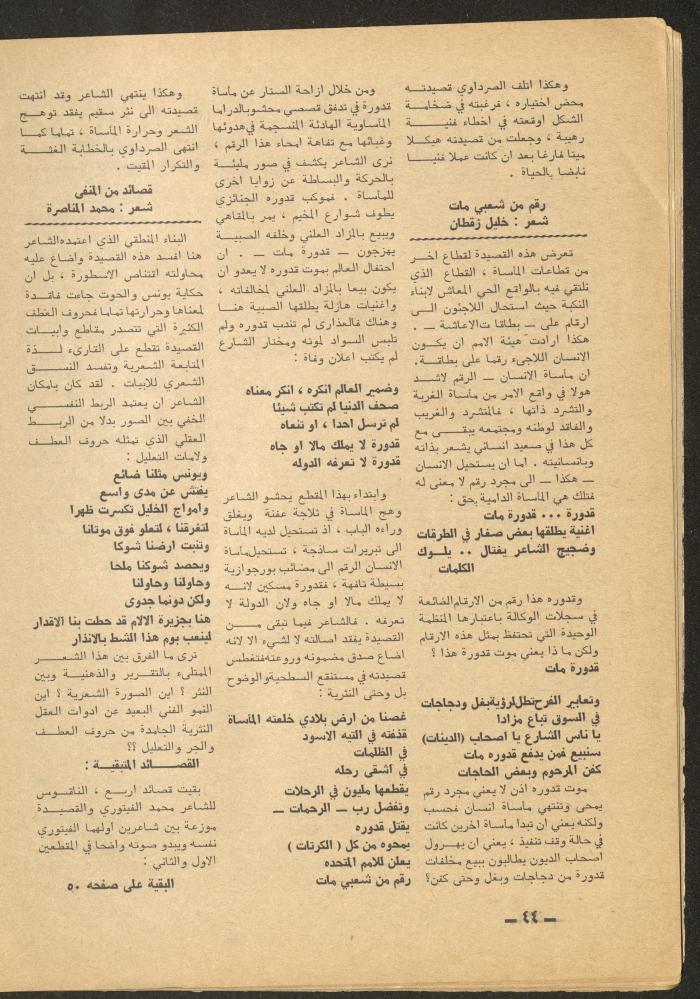 وهكذا اتلف الصرداوي قصيدته
محض اختياره ، فرغبته في ضخامة
الشكل اوقعته في اخطاء فنية
رهيبة ، وجعلت من قصيدته هيكلا
ميتا فارغا بعد ان كانت عملا فنيا
نابضا بالحياة .
رقم من شعبي مات
شعر : خليل زقطان
تعرض هذه القصيدة لقطاع اخر
من قطاعات المأساة ، القطاع الذي
نلتقي فيه بالواقع الحي المعاش لابناء
النكبة حيث استحال اللاجئون الى
ارقام على — بطاقات الاعاشة — .
هكذا ارادت هيئة الامم ان يكون
الانسان اللاجىء رقما على بطاقة .
ان مأساة الانسان — الرقم لاشد
هولا في واقع الامر من مأساة الغربة
والتشرد ذاتها ، فالمتشرد والغريب
والفاقد لوطنه ومجتمعه يبقى مع
كل هذا في صعيد انساني يشعر بذاته
وبانسانيته . اما ان يستحيل الانسان
— هكذا — الى مجرد رقم لا معنى له
فتلك هي المأساة الدامية بحق :
قدورة ... قدورة مات
اغنية يطلقها بعض صغار في الطرقات
وضجيج الشاعر يغتال .. يلوك
الكلمات
وقدوره هذا رقم من الارقام الضائعة
في سجلات الوكالة باعتبارها المنظمة
الوحيدة التي تحتفظ بمثل هذه الارقام
ولكن ما ذا يعني موت قدورة هذا ؟
قدورة مات
وتعابير الفرح تطل لرؤية بغل ودجاجات
في السوق تباع مزادا
يا ناس الشارع يا اصحاب (الدينات)
سنبيع فمن يدفع قدوره مات
كفن المرحوم وبعض الحاجات
موت قدوره اذن لا يعني مجرد رقم
يمحى وتنتهي مأساة انسان فحسب
ولكنه يعني ان تبدأ مأساة اخرين كانت
في حالة وقف تنفيذ ، يعني ان يهرول
اصحاب الديون يطالبون ببيع مخلفات
قدورة من دجاجات وبغل وحتى كفن؟
ومن خلال ازاحة الستار عن مأساة
قدورة في تدفق قصصي محشو بالدراما
المأساوية الهادئة المنسجمة في هدوئها
وغبائها مع تفاهة امحاء هذا الرقم ،
نرى الشاعر يكشف في صور مليئة
بالحركة والبساطة عن زوايا اخرى
للمأساة . فموكب قدوره الجنائزي
يطوف شوارع المخيم ، يمر بالمقاهي
ويبيع بالمزاد العلني وخلفه الصبية
يهزجون — قدورة مات — . ان
احتفال العالم بموت قدوره لا يعدو ان
يكون بيعا بالمزاد العلني لمخالفاته ،
واغنيات هازلة يطلقها الصبية هنا
وهناك فالعذارى لم تندب قدوره ولم
تلبس السواد لموته ومختار الشارع
لم يكتب اعلان وفاة :
وضمير العالم انكره ، انكر معناه
صحف الدنيا لم تكتب شيئا
لم ترسل احدا ، او تنعاه
قدورة لا يملك مالا او جاه
قدورة لا تعرفه الدوله
وابتداء بهذا المقطع يحشو الشاعر
وهج المأساة في ثلاجة عفنة ويغلق
وراءه الباب ، اذ تستحيل لديه المأساة
الى تبريرات ساذجة ، تستحيل مأساة
الانسان الرقم الى مصائب بورجوازية
بسيطة تافهة ، فقدورة مسكين لانه
لا يملك مالا او جاه ولان الدولة لا
تعرفه . فالشاعر فيما تبقى من
القصيدة يفقد اصالته لا لشيء الا لانه
اضاع صدق مضمونه وروعته فتغطس
قصيدته في مستنقع السطحية والوضوح
بل وحتى النثرية :
غصنا من ارض بلادي خلعته المأساة
قذفته في التيه الاسود
في الظلمات
في أشقى رحله
يقطعها مليون في الرحلات
وتفضل رب — الرحمات —
يقتل قدوره
يمحوه من كل ( الكرتات )
يعلن للامم المتحده
رقم من شعبي مات
وهكذا ينتهي الشاعر وقد انتهت
قصيدته الى نثر سقيم يفقد توهج
الشعر وحرارة المأساة ، تماما كما
انتهى الصرداوي بالخطابة الغثة
والتكرار المقيت .
قصائد من المنفى
شعر : محمد المناصرة
البناء المنطقي الذي اعتمده الشاعر
هنا افسد هذه القصيدة واضاع عليه
محاولته اقتناص الاسطورة ، بل ان
حكاية يونس والحوت جاءت فاقدة
لمعناها وحرارتها تماما فحروف العطف
الكثيرة التي تتصدر مقاطع وابيات
القصيدة تقطع على القارىء لذة
المتابعة الشعرية وتفسد النسق
الشعري للابيات . لقد كان بامكان
الشاعر ان يعتمد الربط النفسي
الخفي بين الصور بدلا من الربط
العقلي الذي تمثله حروف العطف
ولامات التعليل :
ويونس مثلنا ضائع
يفتش عن مدى واسع
وامواج الخليل تكسرت ظهرا
لتغرقنا ، لتعلو فوق موتانا
وتنبت ارضنا شوكا
ويحصد شوكنا ملحا
وحاولنا وحاولنا
ولكن دونما جدوى
هنا بجزيرة الالام قد حطت بنا الاقدار
لينعب بوم هذا الشط بالانذار
ترى ما الفرق بين هذا الشعر
الممتلىء بالتقرير والذهنية وبين
النثر ؟ اين الصورة الشعرية ؟ اين
النمو الفني البعيد عن ادوات العقل
النثرية الجامدة من حروف العطف
والجر والتعليل ؟؟
القصائد المتبقية :
بقيت قصائد اربع ، الناقوس
للشاعر محمد الفيتوري والقصيدة
موزعة بين شاعرين اولهما الفيتوري
نفسه ويبدو صوته واضحا في المقطعين
الاول والثاني :
البقية على صفحه ٥٠
— ٤٤ —